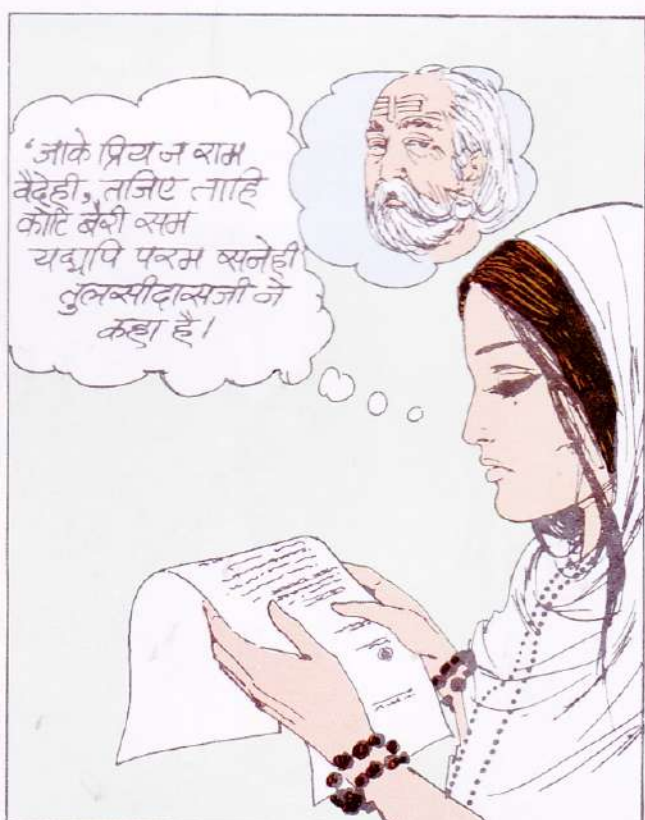 'जाके प्रिय न राम
वैदेही, तजिए ताहि
कोटि बैरी सम
यद्यपि परम सनेही
तुलसीदासजी ने
कहा है।